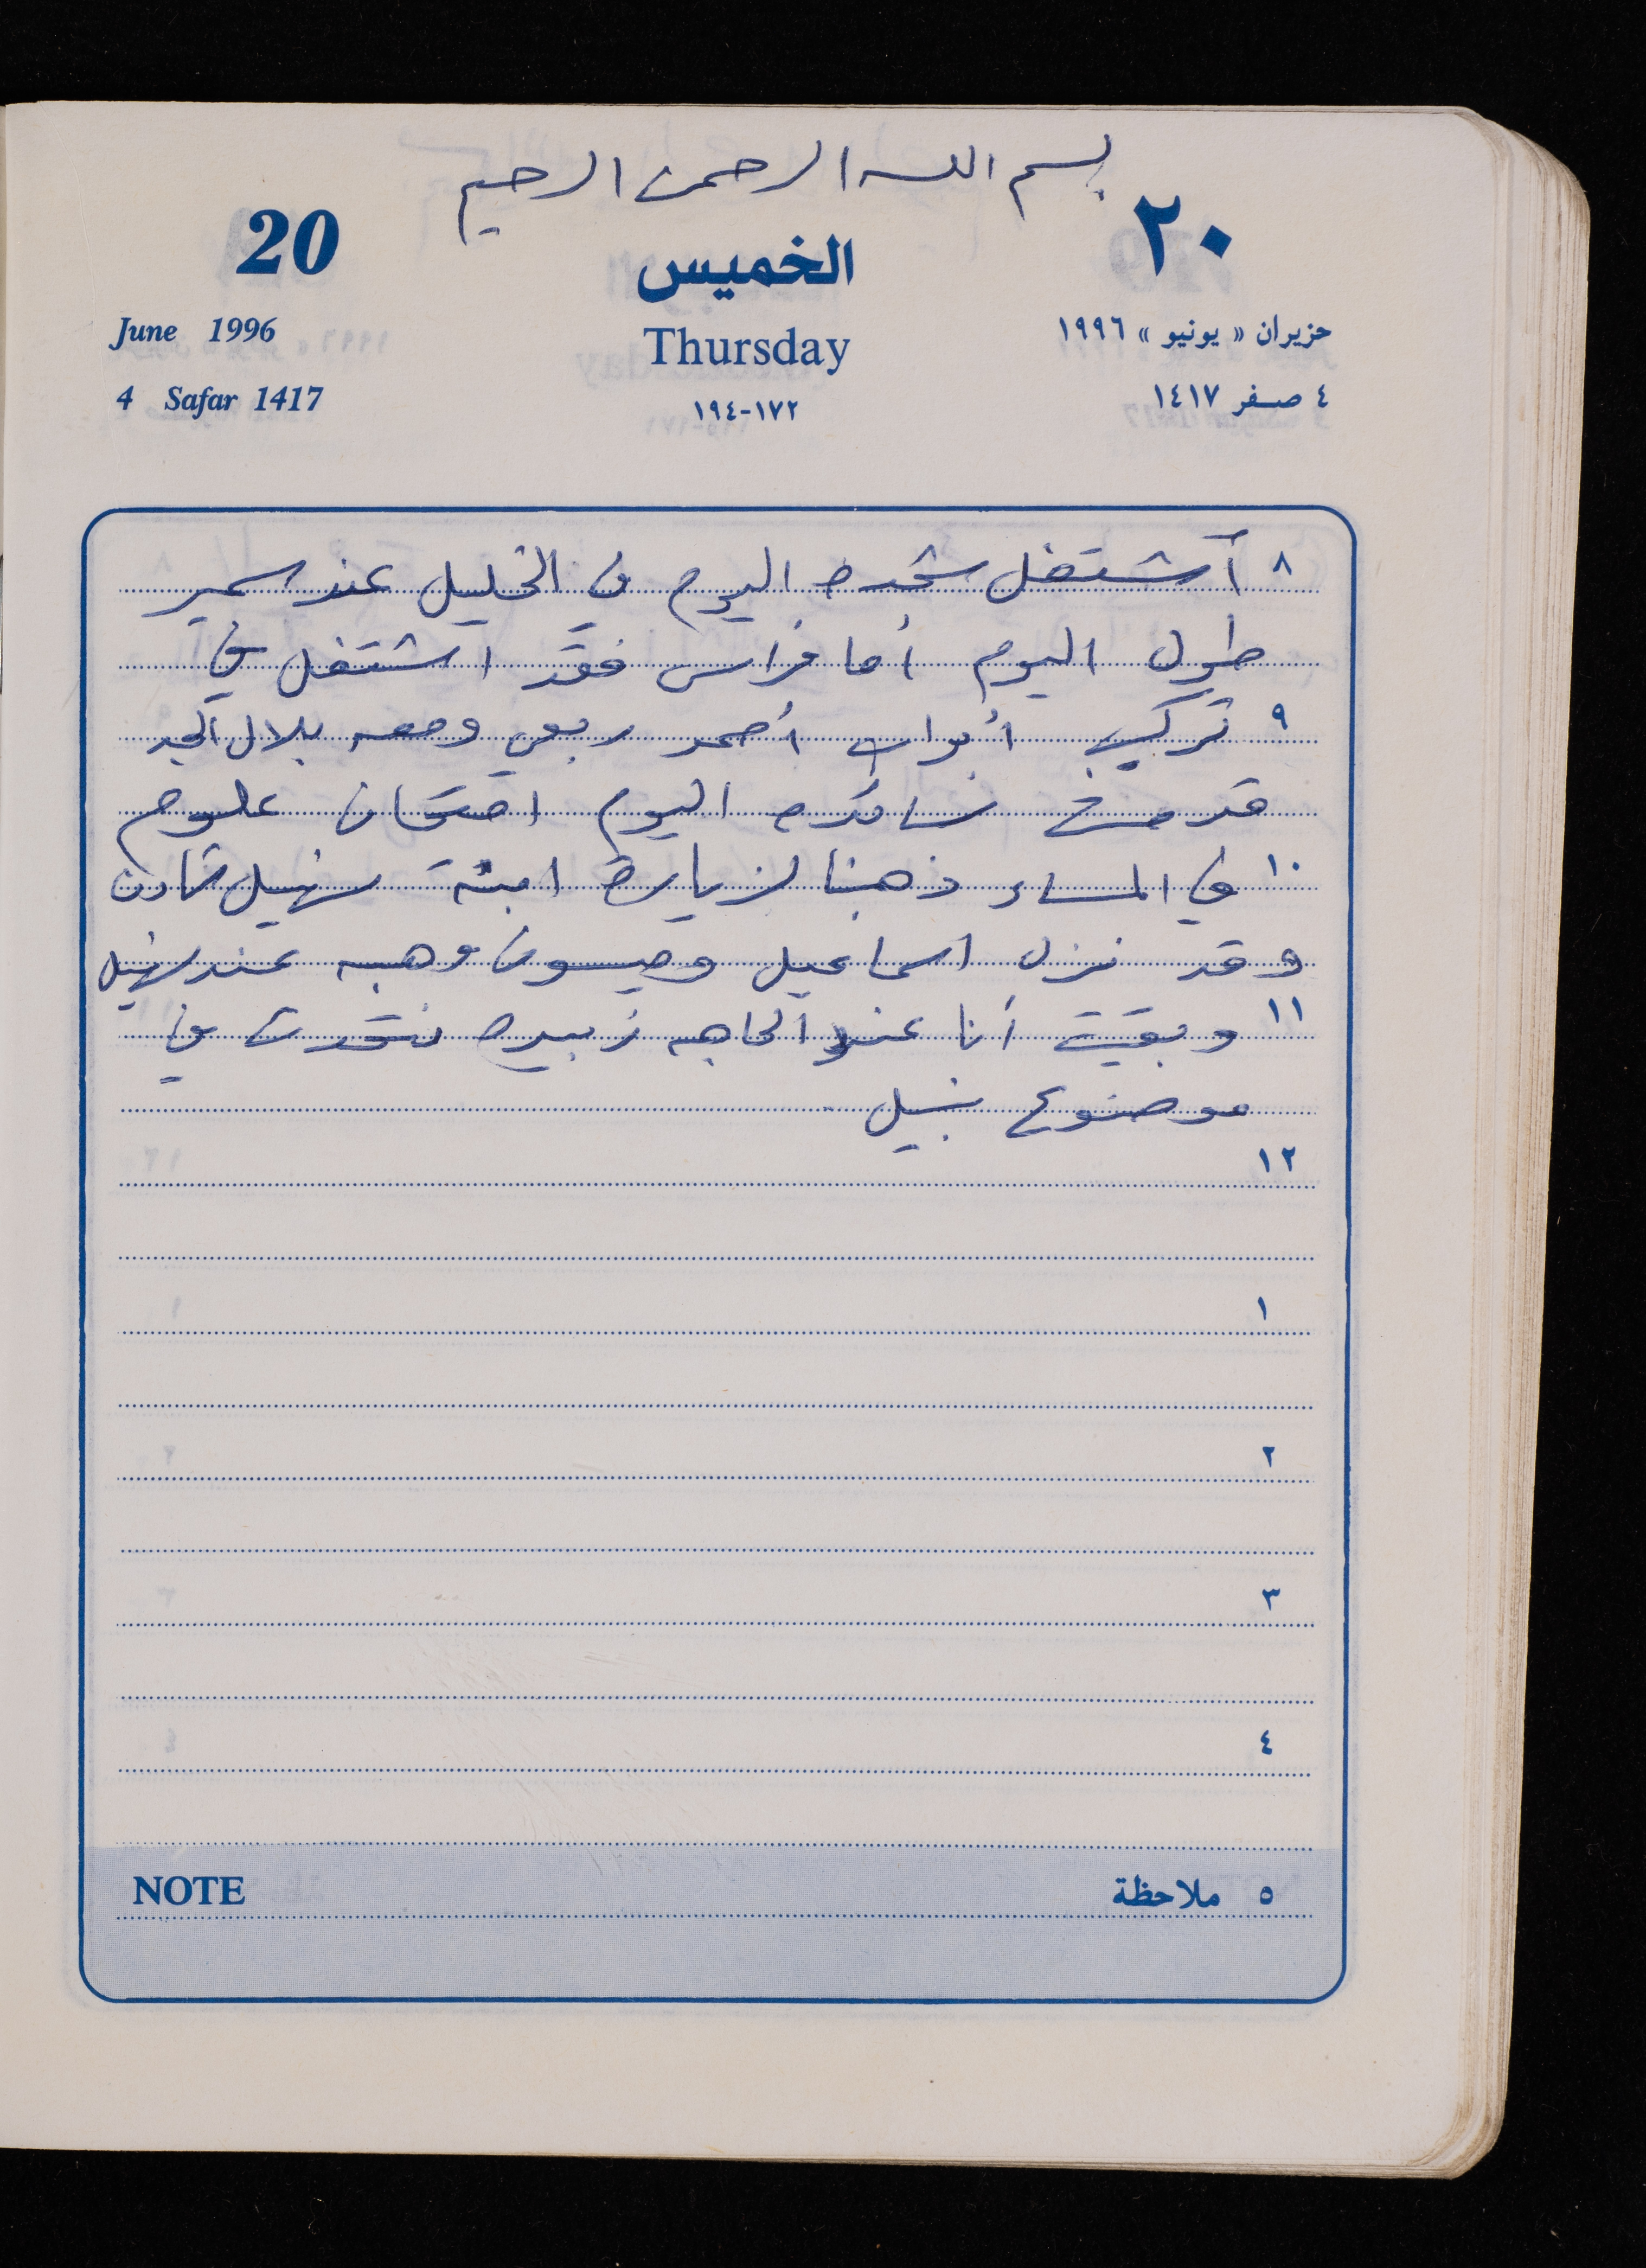 بسم الله الرحمن الرحيم
20
الخميس
٢٠
June 1996
Thursday
حزيران « يونيو » ١٩٩٦
4 Safar 1417
١٧٢-١٩٤
٤ صفر ١٤١٧
٨ اشتغل شحده اليوم في الخليل عند سمير
طول اليوم أما فراس فقد اشتغل في
٩ تركيب ابواب أحمد ربعي ومعه بلال
قدمت اليوم امتحان علوم
١٠ في المساء ذهبنا لزيارة ابنة
وقد نزل اسماعيل وميسون وهبه عند
١١ وبقيت أنا عند الحاجه زبيده نتحدث في
موضوع نبيل
١٢
١
٢
٣
٤
NOTE
٥ ملاحظة